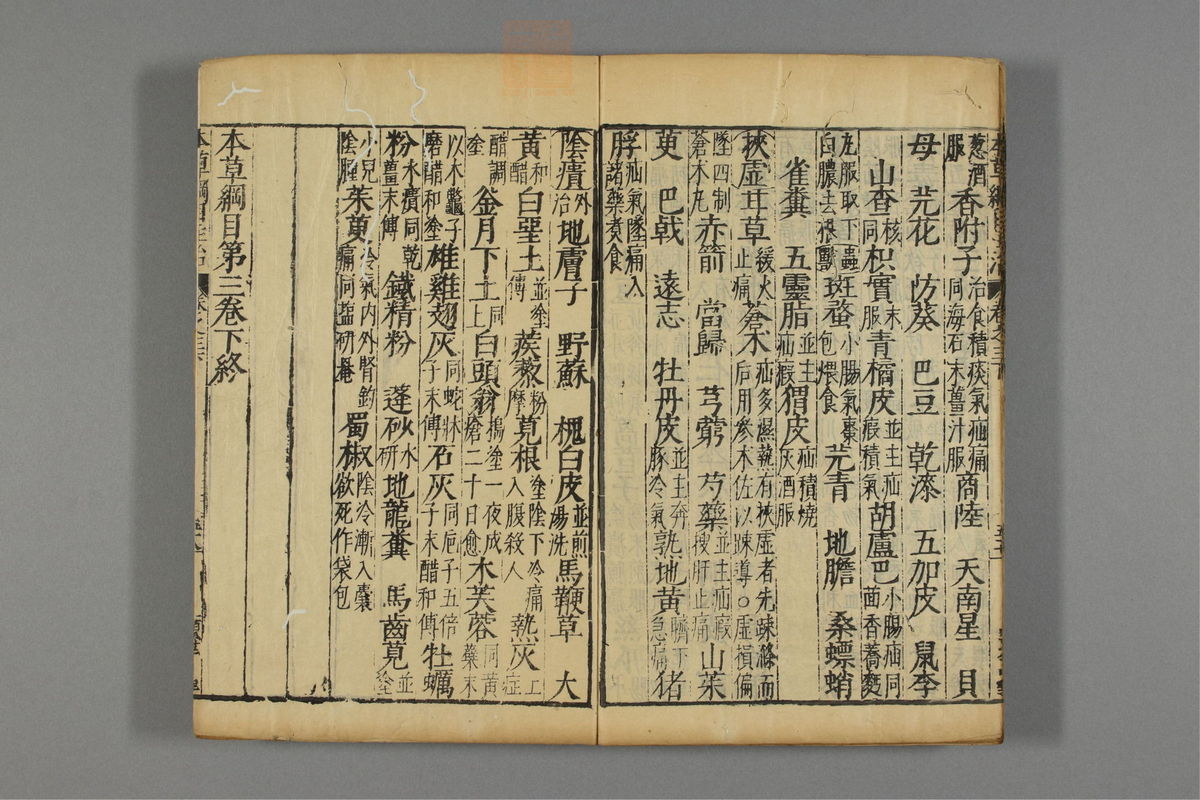 葱酒服香附子治食積痰氣疝痛同海石末薑汁服商陸　天南星　貝
母　芫花　防葵　巴豆　乾漆　五加皮　鼠李
山查核同枳實末服青橘皮並主疝瘕積氣胡盧巴小腸疝同茴香蕎麥
丸服取下白膿去根班蝥小腸氣棗包煨食芫青　地膽　桑螵蛸
雀糞　五靈脂並主疝瘕猬皮疝積燒灰酒服
挾虛甘草緩火止痛蒼朮疝多濕熱有挾虛者先疎滌而后用參朮佐以疎導○虛損偏
墜四制蒼朮丸赤箭　當歸　芎藭　芍藥並主疝瘕搜肝止痛山茱
萸　巴戟　遠志　牡丹皮並主奔豚冷氣熟地黃臍下急痛猪
脬疝氣墜痛入諸藥煮食
陰㿉外治地膚子　野蘇　槐白皮並煎湯洗馬鞭草　大
黃和醋白堊土並塗傅蒺藜粉摩莧根塗陰下冷痛入腹殺人熱灰上症
醋調塗釜月下土同上白頭翁搗塗一夜成瘡二十日愈木芙蓉同黃蘗末
以木鼈子磨醋和塗雄雞翅灰同蛇牀子末傅石灰同梔子五倍子末醋和傅牡蠣
粉水㿉同乾薑末傅鐵精粉　蓬砂水研地龍糞　馬齒莧並塗
小兒陰腫茱萸冷氣內外腎釣痛同鹽研罨蜀椒陰冷漸入囊欲死作袋包
本草綱目第三卷下終